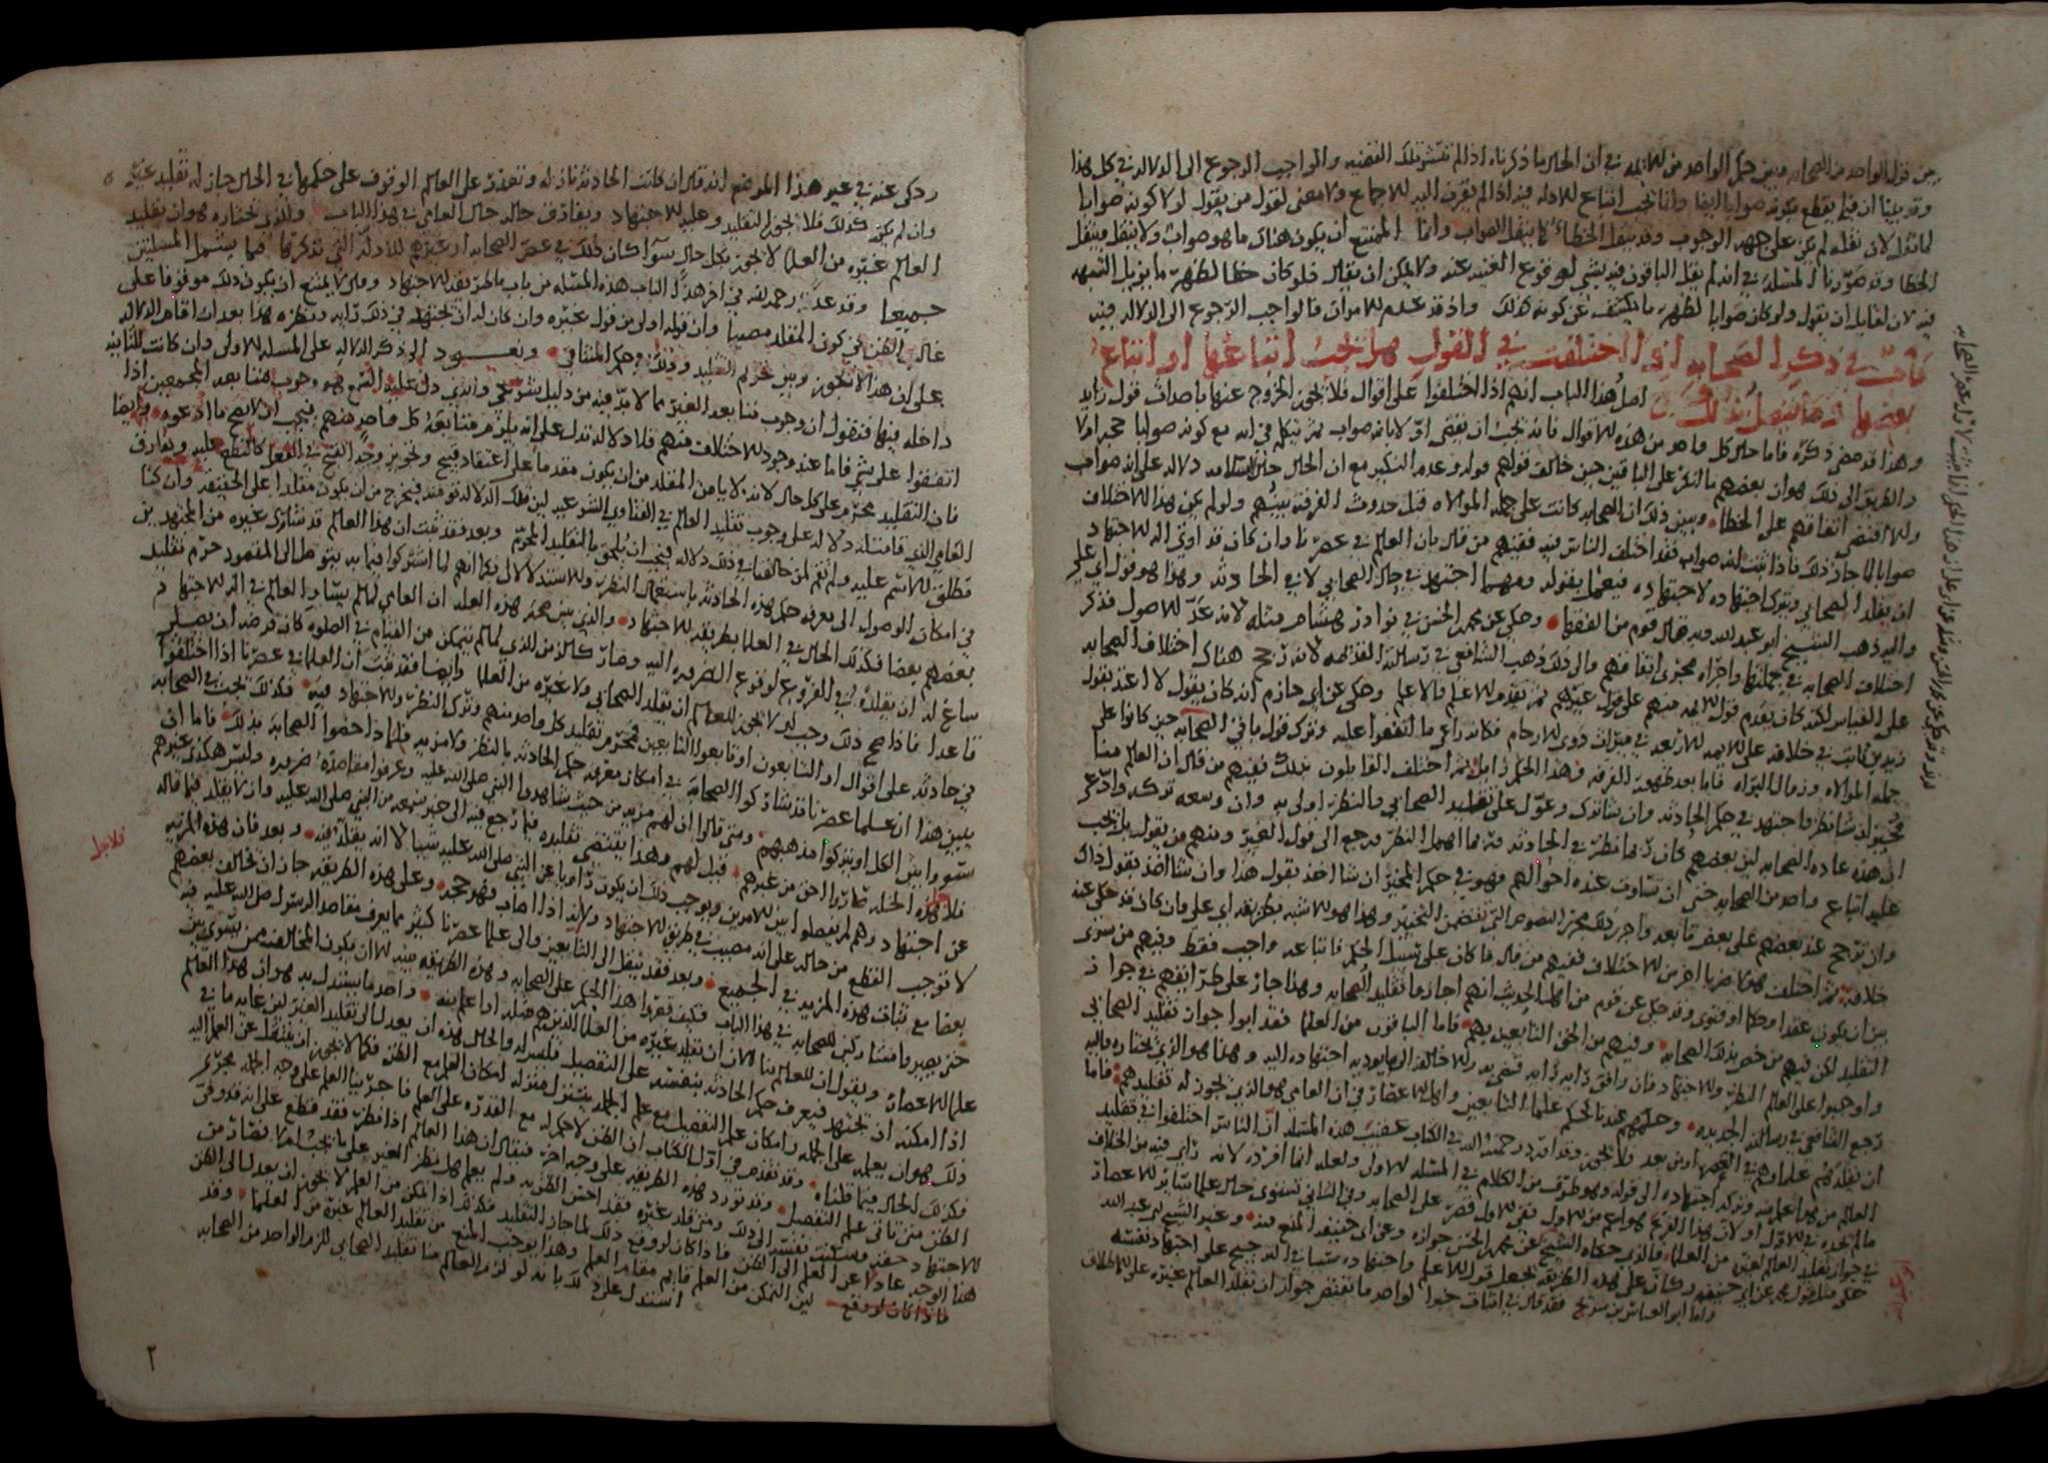 بين قول الواحد من الصحابه وبين حكم الواحد من الايمه في ان الحال ما ذكرناه اذا لم تنتشر تلك القضيه والواجب الرجوع الى الدلاله في كل هذا
وقد بينا ان فيما يقطع بكونه صوابا ايضا وانما يجب اتباع الادله فيه اذا لم يقترن اليه الاجماع ولا معنى لقول من يقول لولا كونه صوابا
لما نقل لان نقله لم يكن على جهه الوجوب وقد ينقل الخطاء كما ينقل الصواب وانما الممتنع ان يكون هناك ما هو صواب ولا ينقل وينقل
الخطا وقد صورنا المسئله في انه لم يقل الباقون فيه بشي لم وقوع الغنيه عنه ولا يمكن ان يقال فلو كان خطا لظهر ما يزيل الشبهه
فيه لان لقايل ان يقول ولو كان صوابا لظهر ما يكشف عن كونه كذلك واذ قد عدم الامران فالواجب الرجوع الى الدلاله فيه
في ذكر الصحابه اذا اختلفت في القول هل يجب اتباعها او اتباع
بعضها وما يتصل بذلك اصل هذا الباب انهم اذا اختلفوا على اقوال فلا يجوز الخروج عنها باحداث قول زايد
وهذا قد مضى ذكره فاما حال كل واحد من هذه الاقوال فانه يجب ان يقضى اولا بانه صواب ثم يتكلم في انه مع كونه صوابا حجه ام لا
والطريق الى ذلك هو ان بعضهم لم ينكر على الباقين حين خالف قولهم قوله وعدم النكير مع ان الحال حال السلامه دلاله على انه صواب
والا اقتضى اتفاقهم على الخطا وبين ذلك ان الصحابه كانت على جمله الموالاه قبل حدوث الفرقه بينهم ولو لم يكن هذا الاختلاف
صوابا لما جاز ذلك فاذا ثبت انه صواب فقد اختلف الناس فيه فمنهم من قال بان العالم في عصرنا وان كان قد اوتي اله الاجتهاد
ان يقلد الصحابي ويترك اجتهاده لاجتهاده فيعمل بقوله ومهما اجتهد في حال الصحابي لا في الحادثه وهذا هو قول ابي علي
واليه ذهب الشيخ ابو عبد الله وبه قال قوم من الفقها وحكي عن محمد بن الحسن في نوادر هشام مثله لانه عد الاصول فذكر
اختلاف الصحابه في جملتها واجراه مجرى اتفاقهم والى ذلك ذهب الشافعي في رسالته القديمه لانه رجح هناك اختلاف الصحابه
على القياس لكنه كان يقدم قول الايمه منهم على قول غيرهم ثم يقدم الاعلم فالاعلم وحكى عن ابي حازم انه كان يقول لا اعتد بقول
زيد بن ثابت في خلافه على الايمه الاربعه في ميراث ذوي الارحام فكانه راعى ما اتفقوا عليه وترك قول باقي الصحابه حين كانوا على
جمله الموالاه وزوال البراه فاما بعد ظهور الفرقه فهذا الحكم زايل ثم اختلف القايلون بذلك فمنهم من قال ان العالم منا
مخير ان شا نظر واجتهد في حكم الحادثه وان شا ترك وعول على تقليد الصحابي والنظر اولى به وان وسعه تركه وادعى
ان هذه عاده الصحابه لان بعضهم كان ربما نظر في الحادثه وربما اهمل النظر ورجع الى قول الغير ومنهم من يقول بل يجب
عليه اتباع واحد من الصحابه حتى ان تساوت عنده احوالهم فهو في حكم المخير ان شا اخذ بقول هذا وان شا اخذ بقول ذاك
وان ترجح عنده بعضهم على بعض تابعه واجرى ذلك مجرى النصوص التي تتضمن التخيير وهذا هو الاشبه بطريقه ابي علي وان كان قد حكى عنه
خلافه ثم اختلف هولا ضربا اخر من الاختلاف فمنهم من قال ما كان على سبيل الحكم فاتباعه واجب فقط وفيهم من سوى
بين ان يكون عقدا وحكما او فتوى وقد حكي عن قوم من اهل الحديث انهم اجازوا تقليد الصحابه وهذا جاز على طرايقهم في جواز
التقليد لكن فيهم من خص بذلك الصحابه وفيهم من الحق التابعين بهم فاما الباقون من العلما فقد ابوا جواز تقليد الصحابي
واوجبوا على العالم النظر والاجتهاد فان وافق رايه رايه قضي به والا خالف الى ما يوديه اجتهاده اليه وهذا هو الذي نختاره واليه
رجع الشافعي في رسالته الجديده وحكمهم عندنا كحكم علما التابعين واهل الاعصار في ان العامي هو الذي يجوز له تقليدهم فاما
ان يقلدهم علماوهم في العصر او من بعد فلا يجوز وقد اورد رحمه الله في الكتاب عقيب هذه المسئله ان الناس اختلفوا في تقليد
العالم من هو اعلم منه وتركه اجتهاده الى قوله وهو طرف من الكلام في المسئله الاولى ولعله انما افرده لانه راى فيه من الخلاف
ما لم يجده في الاول او لان هذا الفرع هو اعم من الاول ففي الاول قصر على الصحابه وفي الثاني تستوي حال علما ساير الاعصار
في جواز تقليد العالم لغيره من العلما فالذي حكاه الشيخ عن محمد بن الحسن جوازه وعن ابي حنيفه المنع منه وعند الشيخ ابي عبد الله
حكى مثل قول محمد عن ابي حنيفه وكان على هذه الطريقه يجعل قول الاعلم واجتهاده سببا في الترجيح على اجتهاد نفسه
واما ابو العباس بن سريج فقد قال في اثبات خبر الواحد ما يقتضي جواز ان يقلد العالم غيره على الاطلاق
وحكى عنه في غير هذا الموضع انه قال ان كانت الحادثه نازله وتعذر على العالم الوقوف على حكمها في الحال جاز له تقليد غيره
وان لم يكن كذلك فلا يجوز التقليد وعليه الاجتهاد ويفارق حاله حال العامي في هذا الباب والذي نختاره هو ان تقليد
العالم غيره من العلما لا يجوز بكل حال سوا كان ذلك في عصر الصحابه او غيرهم للادله التي نذكرها فيما يشمل المسئلتين
جميعا وقد عد رحمه الله في اخر هذا الباب هذه المسئله من باب ما طريقه الاجتهاد وقال لا يمتنع ان يكون ذلك موقوفا على
غالب الظن في كون المقلد مصيبا وان قوله اولى من قول غيره وان كان له ان يجتهد في ذلك رايه ونظره هذا بعد ان اقام الدلاله
على ان هذا لا يجوز وبين تحريم التقليد وذلك في حكم المتنافي ونعود الى ذكر الدلاله على المسئله الاولى وان كانت الثانيه
داخله فيها فنقول ان وجوب متابعه الغير مما لا بد فيه من دليل شرعي والذي دل عليه الشرع هو وجوب متابعه المجمعين اذا
اتفقوا على شي فاما عند وجود الاختلاف منهم فلا دلاله تدل على انه يلزم متابعه كل واحد منهم فيجب ان لا يصح ما ادعوه وايضا
فان التقليد محرم على كل حال لانه لا يامن المقلد من ان يكون مقدما على اعتقاد قبيح وتجويز وجه القبح في الفعل كالقطع عليه ويفارق
العامي الذي قامت له دلاله على وجوب تقليد العالم في الفتاوى الشرعيه لان تلك الدلاله تومنه فيخرج من ان يكون مقلدا على الحقيقه وان كنا
نطلق الاسم عليه ولم تقم لمن خالفنا في ذلك دلاله فيجب ان يلحق بالتقليد المحرم وبعد فقد ثبت ان هذا العالم قد شارك غيره من المجتهدين
في امكان الوصول الى معرفه حكم هذه الحادثه باستعمال النظر والاستدلال فكما انهم لما اشتركوا فيما به يتوصل الى المقصود حرم تقليد
بعضهم بعضا فكذلك الحال في العلما بطريقه الاجتهاد والذي يبين صحه هذه العله ان العامي لما لم يشارك العالم في اله الاجتهاد
ساغ له ان يقلده في الفروع لوقوع الضروره اليه وصار كالزمن الذي لما لم يتمكن من القيام في الصلوه كان فرضه ان يصلي
قاعدا فاذا صح ذلك وجب ان لا يجوز للعالم ان يقلد الصحابي ولا غيره من العلما وايضا فقد ثبت ان العلما في عصرنا اذا اختلفوا
في حادثه على اقوال او التابعون او تابعوا التابعين فمحرم تقليد كل واحد منهم وترك النظر والاجتهاد فيه فكذلك يجب في الصحابه
يبين هذا ان علما عصرنا قد شاركوا الصحابه في امكان معرفه حكم الحادثه بالنظر ولا مزيه فلماذا خصوا الصحابه بذلك فاما ان
سووا بين الكل او يتركوا مذهبهم ومتى قالوا ان لهم مزيه من حيث شاهدوا النبي صلى الله عليه وعرفوا مقاصده ضروره وليس هكذا غيرهم
فلاجل هذه الخله صاروا احق من غيرهم قيل لهم وهذا يقتضي تقليده فيما رجع فيه الى خبر سمعه من النبي صلى الله عليه وان لا يقلد فيما قاله
عن اجتهاد وهم لم يفصلوا بين الامرين ويوجب ذلك ان يكون راويا عن النبي صلى الله عليه شيا لا انه يقلد فيه وبعد فان هذه المزيه
لا توجب القطع من حاله على انه مصيب في طريق الاجتهاد ولانه اذا اصاب فهو حجه وعلى هذه الطريقه جاز ان يخالف بعضهم
بعضا مع ثبات هذه المزيه في الجميع وبعد فقد ينقل الى التابعين والى علما عصرنا كثير مما يعرف مقاصد الرسول صلى الله عليه فيه
حتى يصيروا مشاركين للصحابه في هذا الباب فكيف قصروا هذا الحكم على الصحابه وهذه الطريقه مبنيه الا ان يكون المخالف ممن يسوي بين
علما الاعصار ويقول ان للعالم منا الان ان يقلد غيره من العلما الذين هم مثله او اعلم منه واحد ما يستدل به هو ان هذا العالم
اذا امكنه ان يجتهد فيعرف حكم الحادثه بنفسه على التفصيل فليس له والحال هذه ان يعدل الى تقليد الغير لان غايه ما في
ذلك هو ان يعلمه على الجمله وامكان علم التفصيل مع علم الجمله يتنزل منزله امكان العلم مع الظن فكما لا يجوز ان ينتقل عن العلم اليه
فكذلك الحال فيما قلناه وقد تقدم في اول الكتاب ان الظن لا حكم له مع القدره على العلم فاجر بنا العلم على وجه الجمله مجرى
الظن متى تاتى علم التفصيل وقد تورد هذه الطريقه على وجه اخر فيقال ان هذا العالم اذا نظر فقد قطع على انه قد وفى
الاجتهاد حقه وسكنت نفسه الى ذلك ومتى قلد غيره فقد احسن الظن به ولم يعلم هل نظر الغير على ما يجب ام لا فصار من
هذا الوجه عادلا عن العلم الى الظن فاذا كان لو وقع ذلك لما جاز التقليد فكذلك اذا تمكن من العلم لا يجوز ان يعدل الى الظن
فاذا كان لو وقع لان التمكن من العلم قايم مقام العلم وهذا يوجب المنع من تقليد العالم غيره من العلما وقد
استدل على ذلك بانه لو لزم العالم منا تقليد الصحابي للزم الواحد من الصحابه
فلاجل
٢